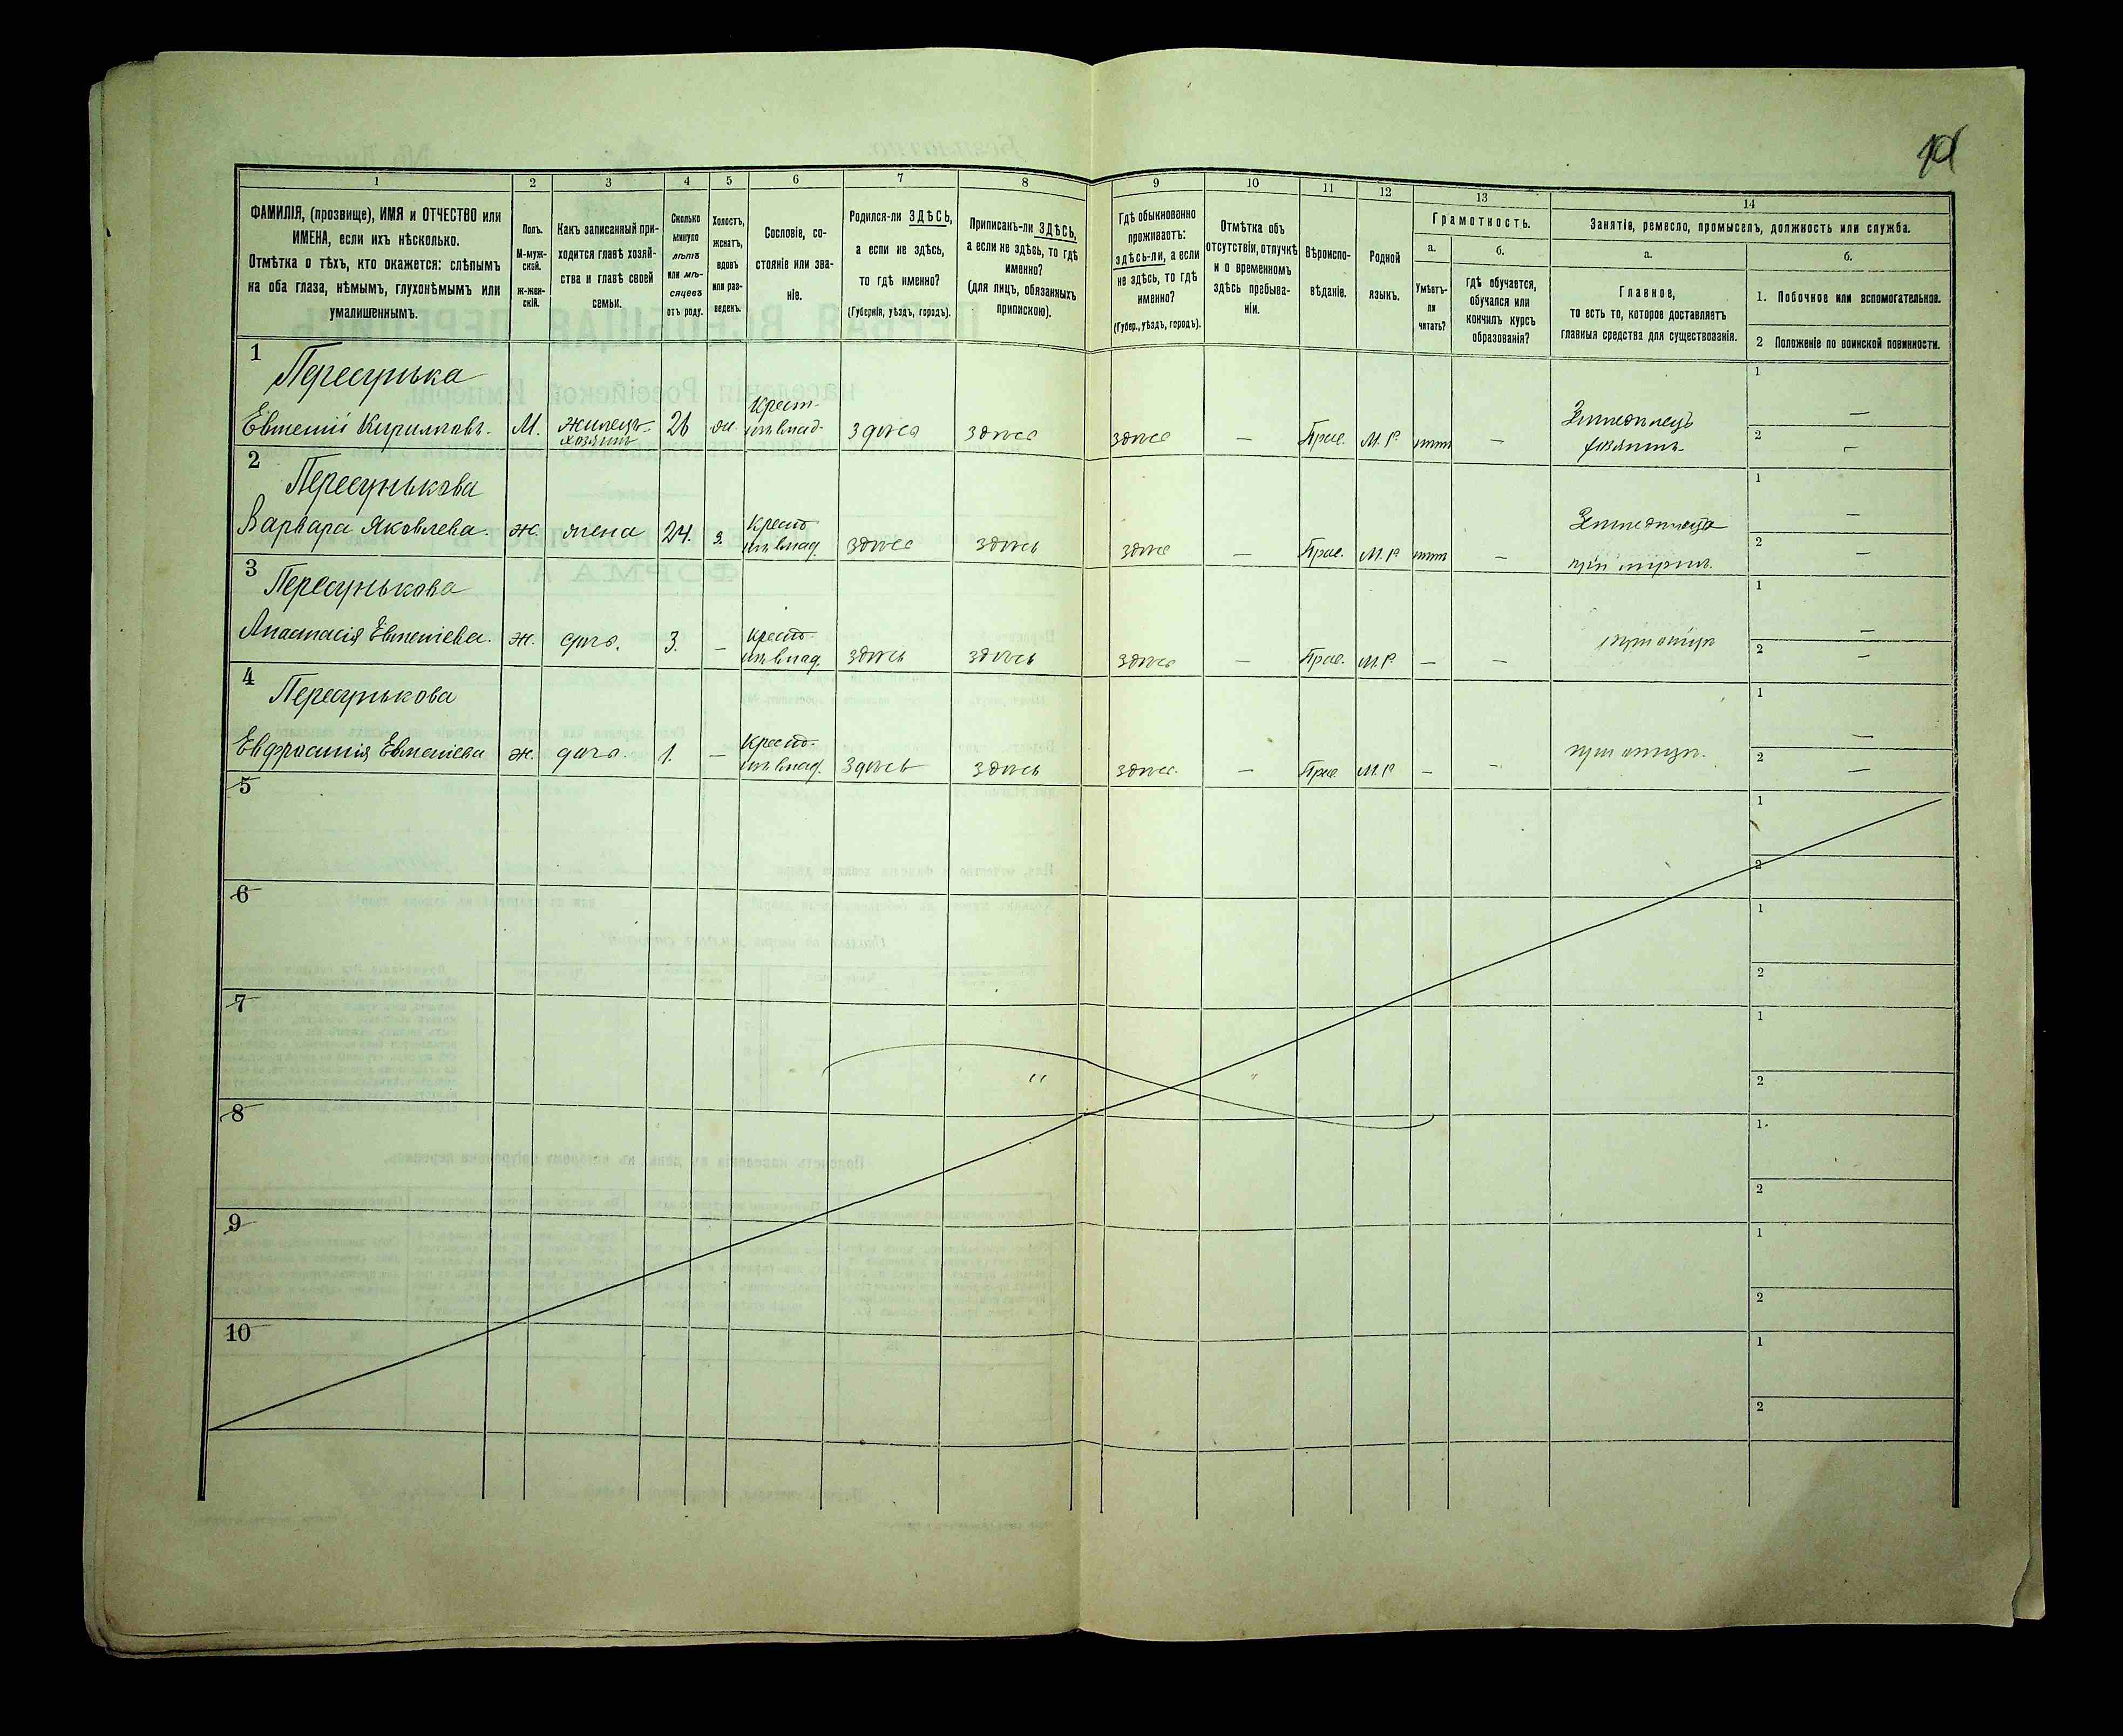 1 2 3 4 5 6 7 8 9 10 11 12 13 14
ФАМИЛІЯ, (прозвище), ИМЯ и ОТЧЕСТВО или
ИМЕНА, если ихъ нѣсколько.
Отмѣтка о тѣхъ, кто окажется: слѣпымъ
на оба глаза, нѣмымъ, глухонѣмымъ или
умалишеннымъ.
Полъ.
М-муж-
ской.
ж-жен-
скій.
Какъ записанный при-
ходится главѣ хозяй-
ства и главѣ своей
семьи.
Сколько
минуло
лѣтъ
или мѣ-
сяцевъ
отъ роду.
Холостъ,
женатъ,
вдовъ
или раз-
веденъ.
Сословіе, со-
стояніе или зва-
ніе.
Родился-ли ЗДѢСЬ,
а если не здѣсь,
то гдѣ именно?
(Губернія, уѣздъ, городъ).
Приписанъ-ли ЗДѢСЬ,
а если не здѣсь, то гдѣ
именно?
(для лицъ, обязанныхъ
припискою).
Гдѣ обыкновенно
проживаетъ:
здѣсь-ли, а если
не здѣсь, то гдѣ
именно?
(Губер., уѣздъ, городъ).
Отмѣтка объ
отсутствіи, отлучкѣ
и о временномъ
здѣсь пребыва-
ніи.
Вѣроиспо-
вѣданіе.
Родной
языкъ.
Грамотность.
а.
Умѣетъ-
ли
читать?
б.
гдѣ обучается,
обучался или
кончилъ курсъ
образованія?
Занятіе, ремесло, промыселъ, должность или служба.
а.
Главное,
то есть то, которое доставляетъ
главныя средства для существованія.
б.
1. Побочное или вспомогательное.
2 Положеніе по воинской повинности.
1
Пересунька
Евтеній Кириловъ. М. жилецъ- хозяинъ 26 Крест. здѣсь здѣсь здѣсь — Прав. М. Р. нѣтъ — Земледѣлецъ хозяинъ
1 —
2 —
2
Пересунькова
Варвара Яковлева. ж. жена 24. з. Крест. здѣсь здѣсь здѣсь — Прав. М. Р. нѣтъ —
1 —
2 —
3
Пересунькова
Анастасія ж. дочь. 3. — Крест. здѣсь здѣсь здѣсь — Прав. М. Р. — — при отцѣ
1 —
2 —
4
Пересунькова
Евфросинія ж. дочь. 1. — Крест. здѣсь здѣсь здѣсь. — Прав. М. Р. — — при отцѣ.
1 —
2 —
5
1
2
6
1
2
7
1
2
8
1
2
9
1
2
10
1
2